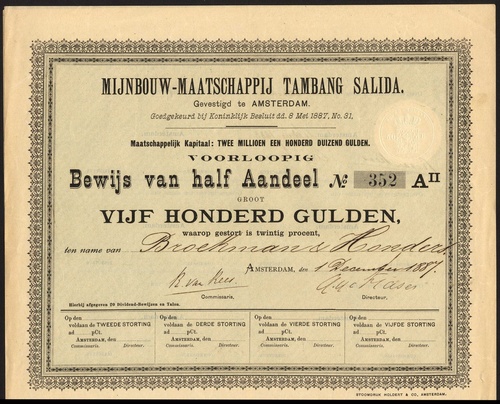 MIJNBOUW-MAATSCHAPPIJ TAMBANG SALIDA.
Gevestigd te AMSTERDAM.
Goedgekeurd bij Koninklijk Besluit dd. 8 Mei 1887, No. 31.
Maatschappelijk Kapitaal: TWEE MILLIOEN EEN HONDERD DUIZEND GULDEN.
VOORLOOPIG
Bewijs van half Aandeel No 352 A II
GROOT
VIJF HONDERD GULDEN,
waarop gestort is twintig procent,
ten name van Broekman & Honders
AMSTERDAM, den 1 December 1887.
Commissaris. Directeur.
Hierbij afgegeven 20 Dividend-Bewijzen en Talon.
Op den Op den Op den Op den
voldaan de TWEEDE STORTING voldaan de DERDE STORTING voldaan de VIERDE STORTING voldaan de VIJFDE STORTING
ad pCt. ad pCt. ad pCt. ad pCt.
AMSTERDAM, den AMSTERDAM, den AMSTERDAM, den AMSTERDAM, den
Commissaris. Directeur. Commissaris. Directeur. Commissaris. Directeur. Commissaris. Directeur.
STOOMDRUK HOLDERT & CO, AMSTERDAM.